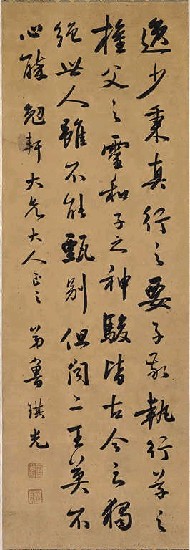 逸少秉真行之要子敬執行草之
權父之靈和子之神駿皆古今之獨
絕世人雖不能甄別但聞二王莫不
心醉 勉軒大兄大人正之 弟